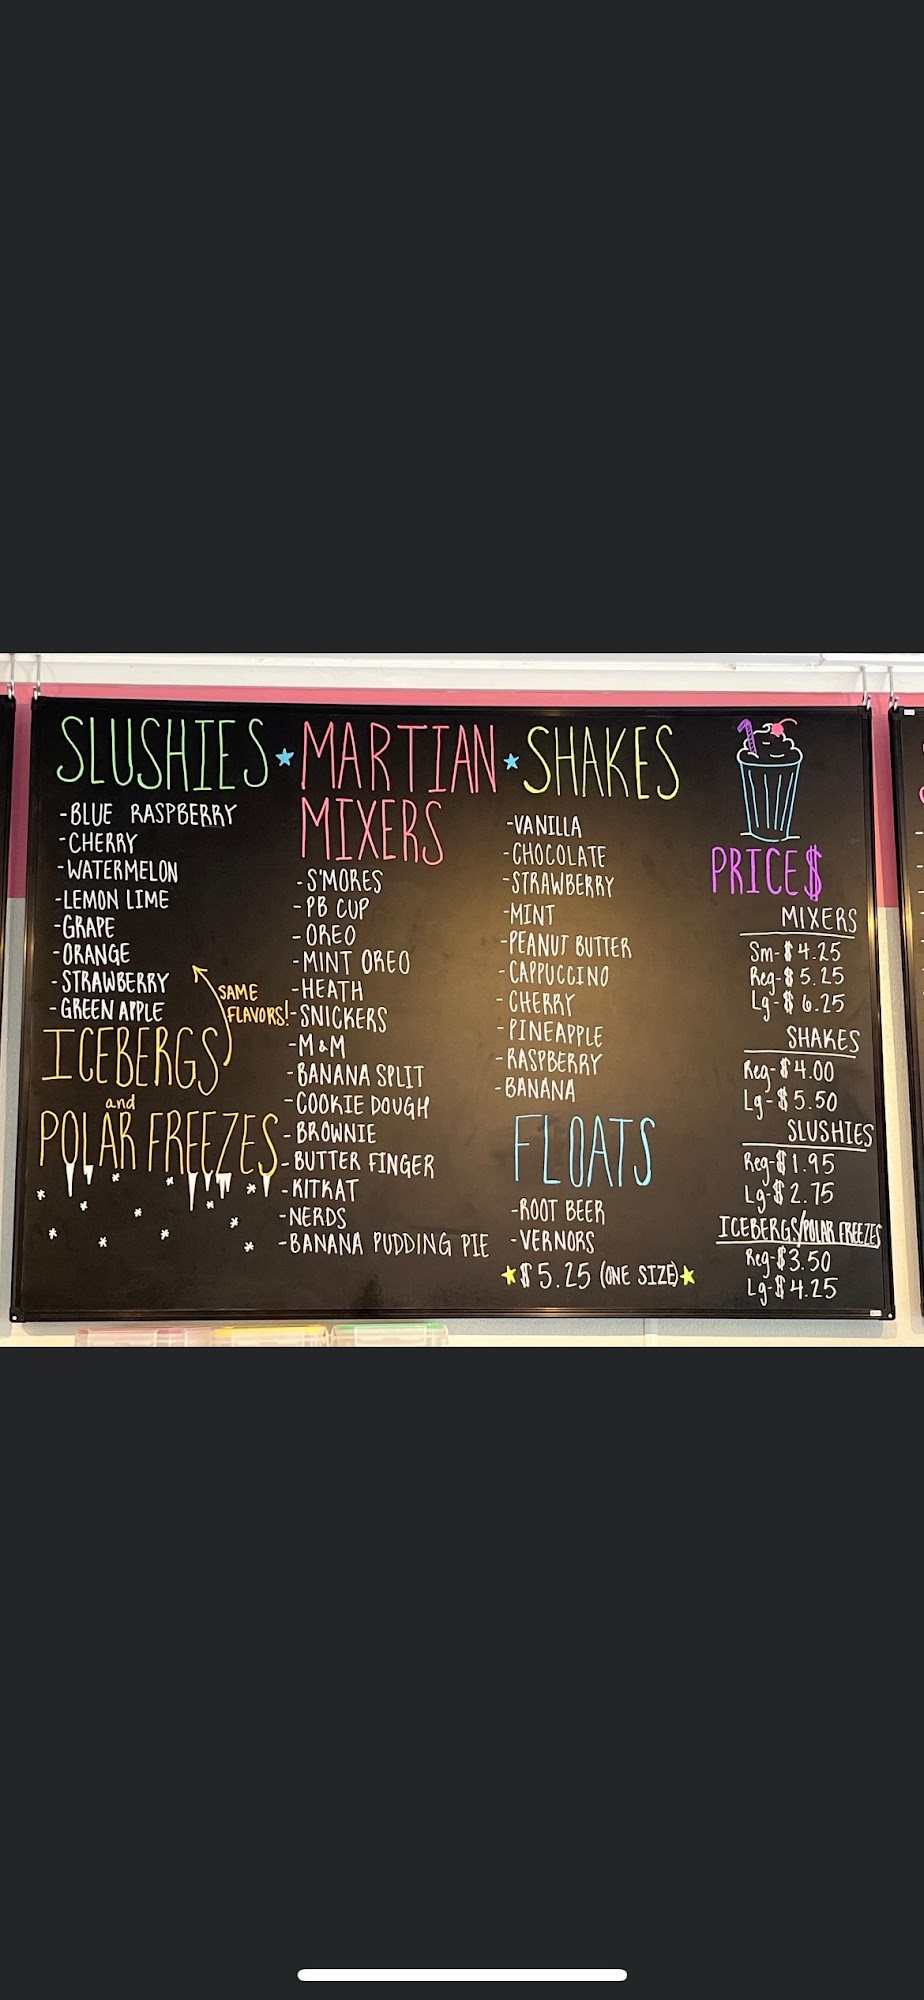 SLUSHIES
-BLUE RASPBERRY
-CHERRY
-WATERMELON
-LEMON LIME
-GRAPE
-ORANGE
-STRAWBERRY
-GREEN APPLE
SAME
FLAVORS!
ICEBERGS
and
POLAR FREEZES
MARTIAN
MIXERS
-S'MORES
-PB CUP
-OREO
-MINT OREO
-HEATH
-SNICKERS
-M&M
-BANANA SPLIT
-COOKIE DOUGH
-BROWNIE
-BUTTER FINGER
-KITKAT
-NERDS
-BANANA PUDDING PIE
SHAKES
-VANILLA
-CHOCOLATE
-STRAWBERRY
-MINT
-PEANUT BUTTER
-CAPPUCCINO
-CHERRY
-PINEAPPLE
-RASPBERRY
-BANANA
FLOATS
-ROOT BEER
-VERNORS
$5.25 (ONE SIZE)
PRICE$
MIXERS
Sm-$4.25
Reg-$5.25
Lg-$6.25
SHAKES
Reg-$4.00
Lg-$5.50
SLUSHIES
Reg-$1.95
Lg-$2.75
ICEBERGS/POLAR FREEZES
Reg-$3.50
Lg-$4.25